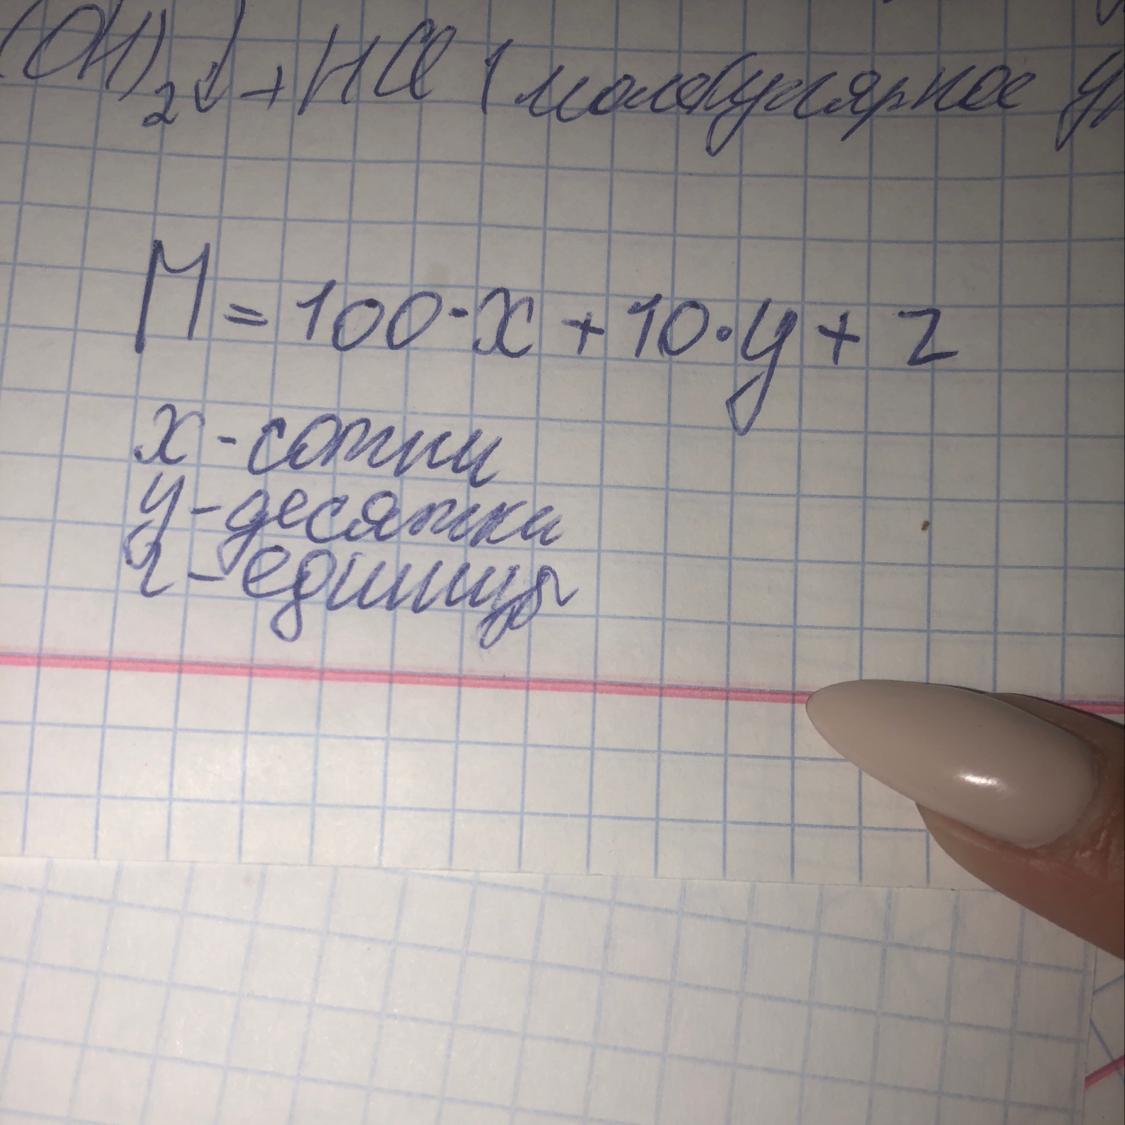 (OH)₂↓ + HCl (молекулярное ур
M = 100·x + 10·y + z
x - сотни
y - десятки
z - единицы